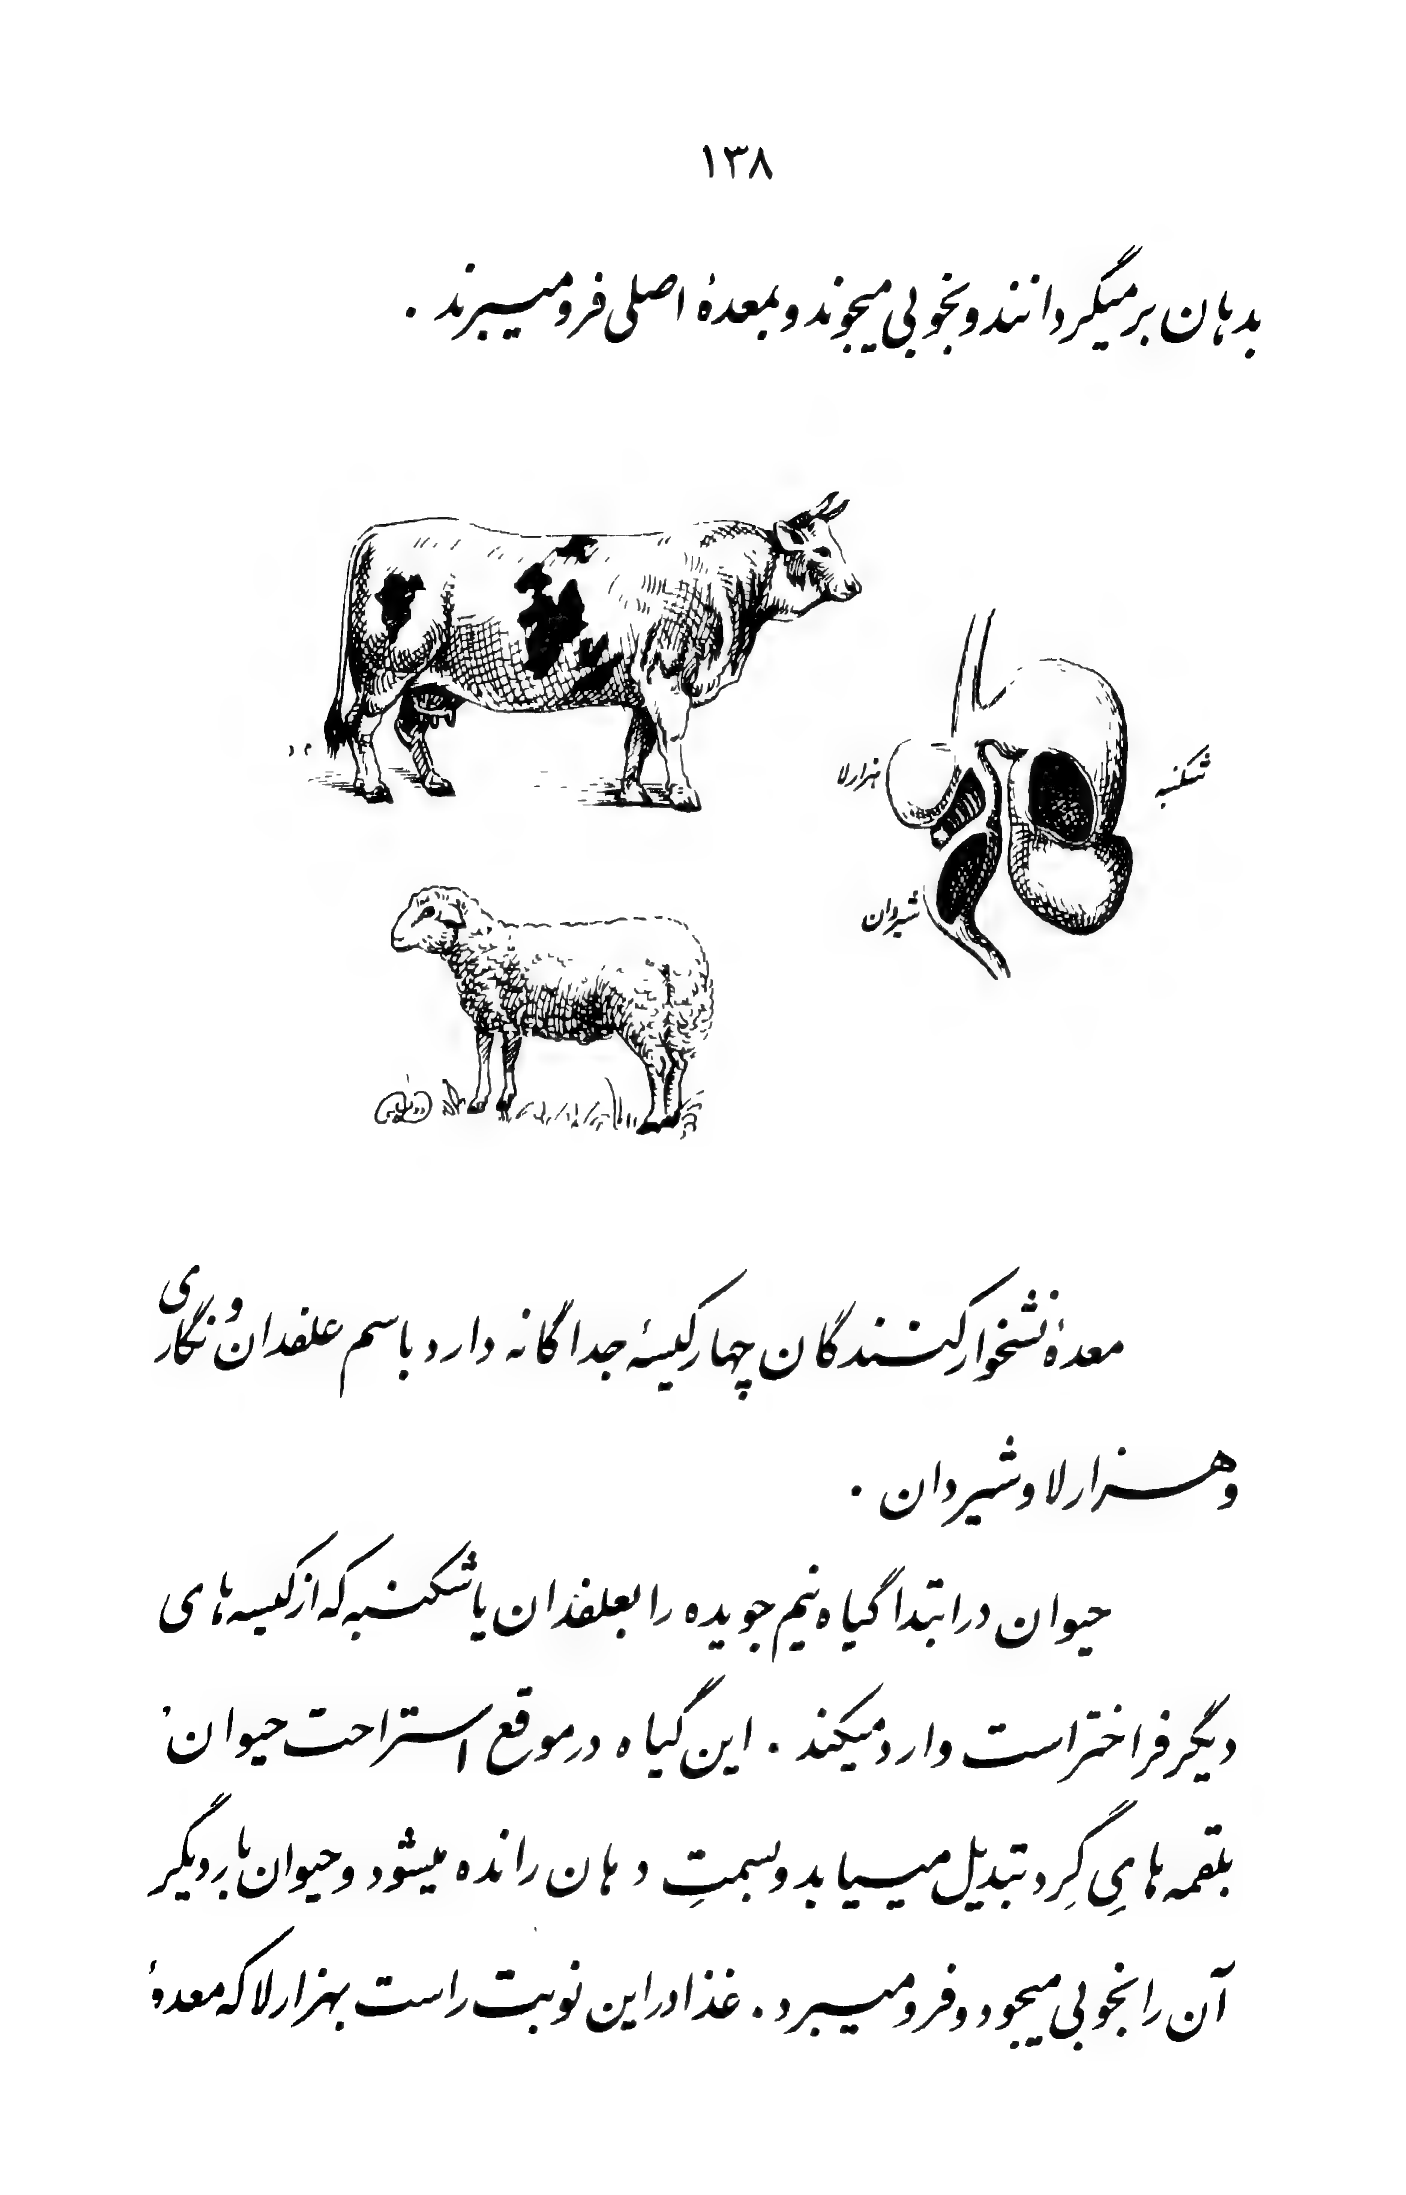 ۱۳۸
بدهان برمیگردانند و بخوبی میجوند و بمعدۀ اصلی فرو میبرند .
هزارلا
شکنبه
شیردان
معدۀ نشخوار کنندگان چهار کیسۀ جداگانه دارد باسم علفدان و نگاری
و هزارلا و شیردان .
حیوان در ابتدا گیاه نیم جویده را بعلفدان یا شکنبه که از کیسه های
دیگر فراختر است وارد میکند . این گیاه در موقع استراحت حیوان
بلقمه هایِ گِرد تبدیل مییابد و بسمتِ دهان رانده میشود و حیوان بار دیگر
آن را بخوبی میجود و فرو میبرد . غذا در این نوبت راست بهزارلا که معدۀ